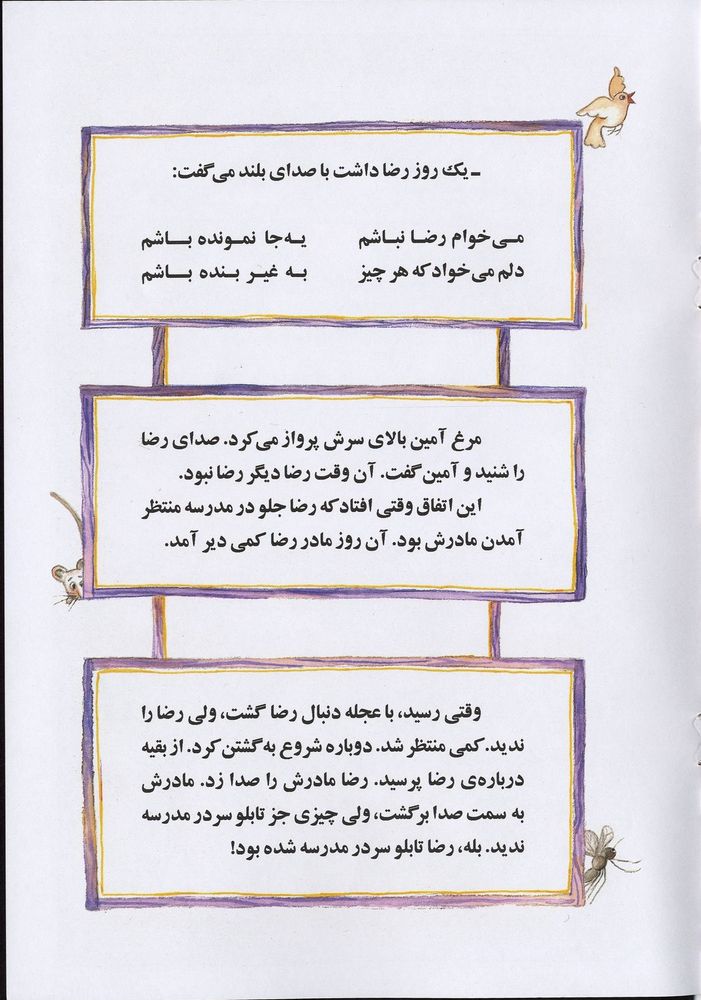 ـ یک روز رضا داشت با صدای بلند می‌گفت:
مـی‌خوام رضـا نبـاشم یـه‌جا نمـونده بـــاشم
دلم می‌خواد که هر چیز بـه غیـر بـنده بـــاشم
مرغ آمین بالای سرش پرواز می‌کرد. صدای رضا
را شنید و آمین گفت. آن وقت رضا دیگر رضا نبود.
این اتفاق وقتی افتاد که رضا جلو در مدرسه منتظر
آمدن مادرش بود. آن روز مادر رضا کمی دیر آمد.
وقتی رسید، با عجله دنبال رضا گشت، ولی رضا را
ندید. کمی منتظر شد. دوباره شروع به گشتن کرد. از بقیه
درباره‌ی رضا پرسید. رضا مادرش را صدا زد. مادرش
به سمت صدا برگشت، ولی چیزی جز تابلو سردر مدرسه
ندید. بله، رضا تابلو سردر مدرسه شده بود!